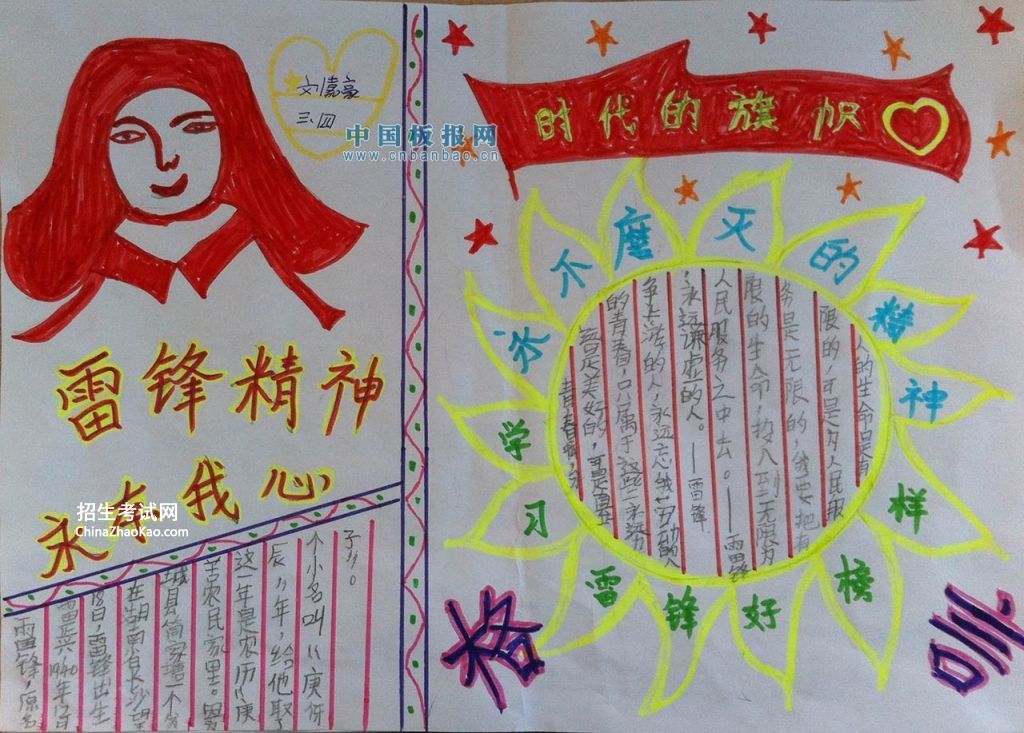 刘嘉豪
三、四
中国板报网
www.cnbanbao.cn
雷锋精神
永在我心
招生考试网
ChinaZhaoKao.com
雷锋,原名
雷正兴1940年12月
18日,雷锋出生
在湖南省长沙望
城县简家塘一个贫
苦农民家里。因为
这一年是农历“庚
辰”年,给他取了
个小名叫“庚伢
子”。
时代的旗帜
永不磨灭的精神
学习雷锋好榜样
人的生命是有
限的,可是为人民服
务是无限的,我要把有
限的生命,投入到无限为
人民服务之中去。——雷锋
青春啊,永
远是美好的,可是真正
的青春,只属于这些永
争上游的人,永远忘我劳动的人
永远谦虚的人。——雷锋
格